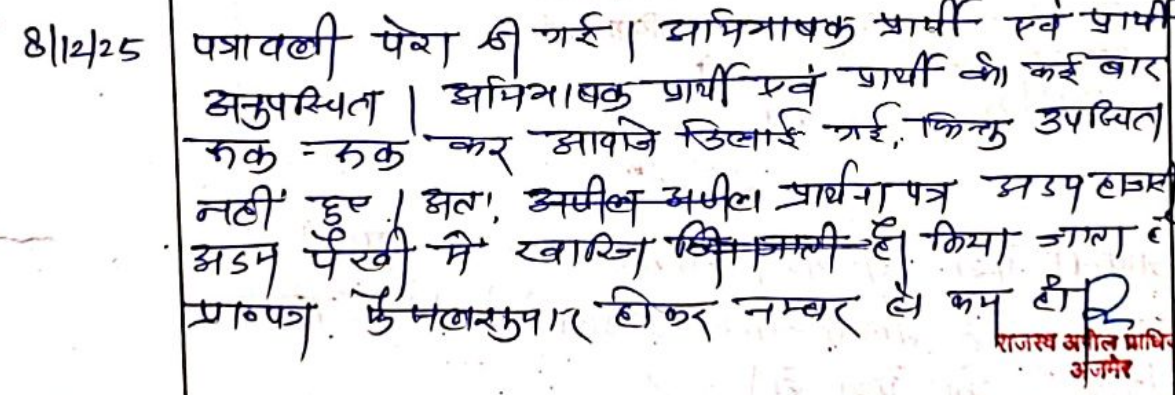 8/12/25 पत्रावली पेश की गई। अभिभाषक प्रार्थी एवं प्रार्थी
अनुपस्थित। अभिभाषक प्रार्थी एवं प्रार्थी को कई बार
रुक-रुक कर आवाजे दिलाई गई, किन्तु उपस्थित
नहीं हुए। अतः अपील अपील प्रार्थना पत्र अदम हाजरी
अदम पैरवी मे खारिज की जाती है। किया जाता है
प्रा०पत्र फैसलशुमार होकर नम्बर से कम हो
राजस्व अपील प्राधि
अजमेर